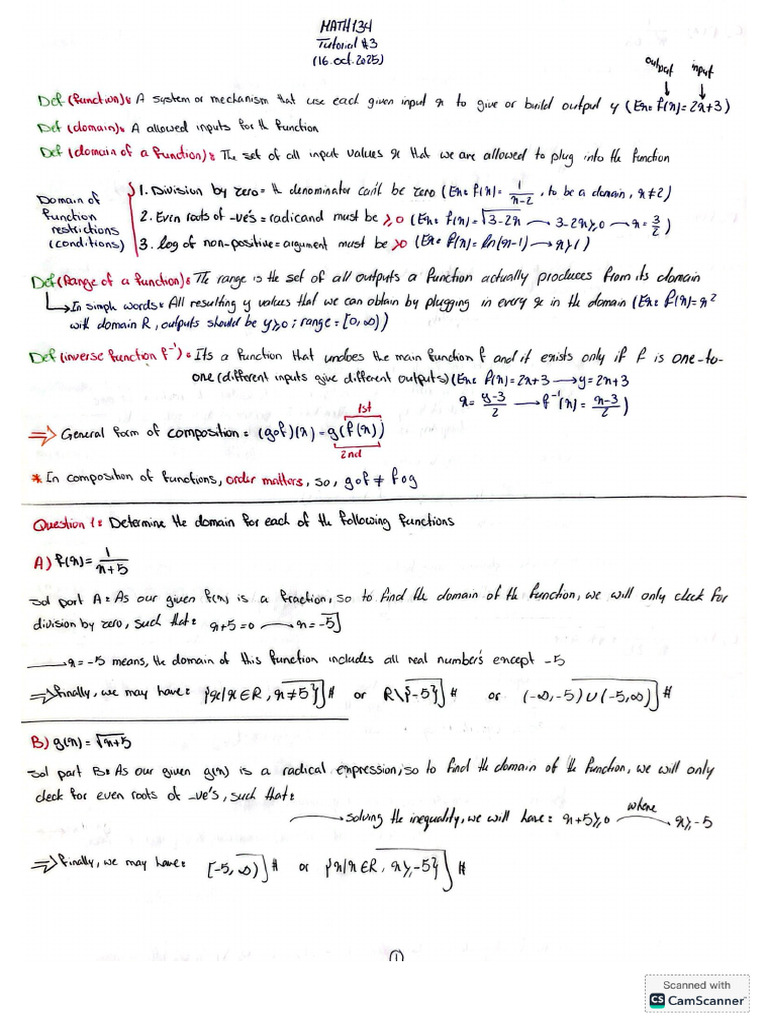 MATH134
Tutorial #3
(16.oct.2025)
output input
Def (function): A system or mechanism that use each given input x to give or build output y (Ex: f(x)=2x+3)
Def (domain): A allowed inputs for th function
Def (domain of a function): The set of all input values x that we are allowed to plug into the function
Domain of function restrictions (conditions)
1. Division by zero = th denominator can't be zero (Ex: f(x)= 1/(x-2), to be a domain, x≠2)
2. Even roots of -ve's = radicand must be ≥0 (Ex: f(x)=√(3-2x) → 3-2x≥0 → x=3/2)
3. log of non-positive = argument must be >0 (Ex: f(x)=ln(x-1) → x>1)
Def (Range of a function): The range is the set of all outputs a function actually produces from its domain
↳ In simple words: All resulting y values that we can obtain by plugging in every x in the domain (Ex: f(x)=x²
with domain R, outputs should be y≥0; range=[0,∞))
Def (inverse function f⁻¹): Its a function that undoes the main function f and it exists only if f is one-to-
one (different inputs give different outputs) (Ex: f(x)=2x+3 → y=2x+3
x= (y-3)/2 → f⁻¹(x)= (x-3)/2)
1st
⇒ General form of composition = (gof)(x)=g(f(x))
2nd
* In composition of functions, order matters, so, gof ≠ fog
Question 1: Determine the domain for each of the following functions
A) f(x)= 1/(x+5)
Sol part A: As our given f(x) is a fraction, so to find the domain of the function, we will only check for
division by zero, such that: x+5=0 → x=-5
→ x=-5 means, the domain of this function includes all real number's except -5
⇒ Finally, we may have: {x/x∈R, x≠5} # or R\{-5} # or (-∞,-5)∪(-5,∞) #
B) g(x)=√(x+5)
Sol part B: As our given g(x) is a radical expression, so to find the domain of the function, we will only
check for even roots of -ve's, such that:
→ solving the inequality, we will have: x+5≥0 where → x≥-5
⇒ Finally, we may have: [-5,∞) # or {x/x∈R, x≥-5} #
(1)
Scanned with
CS CamScanner